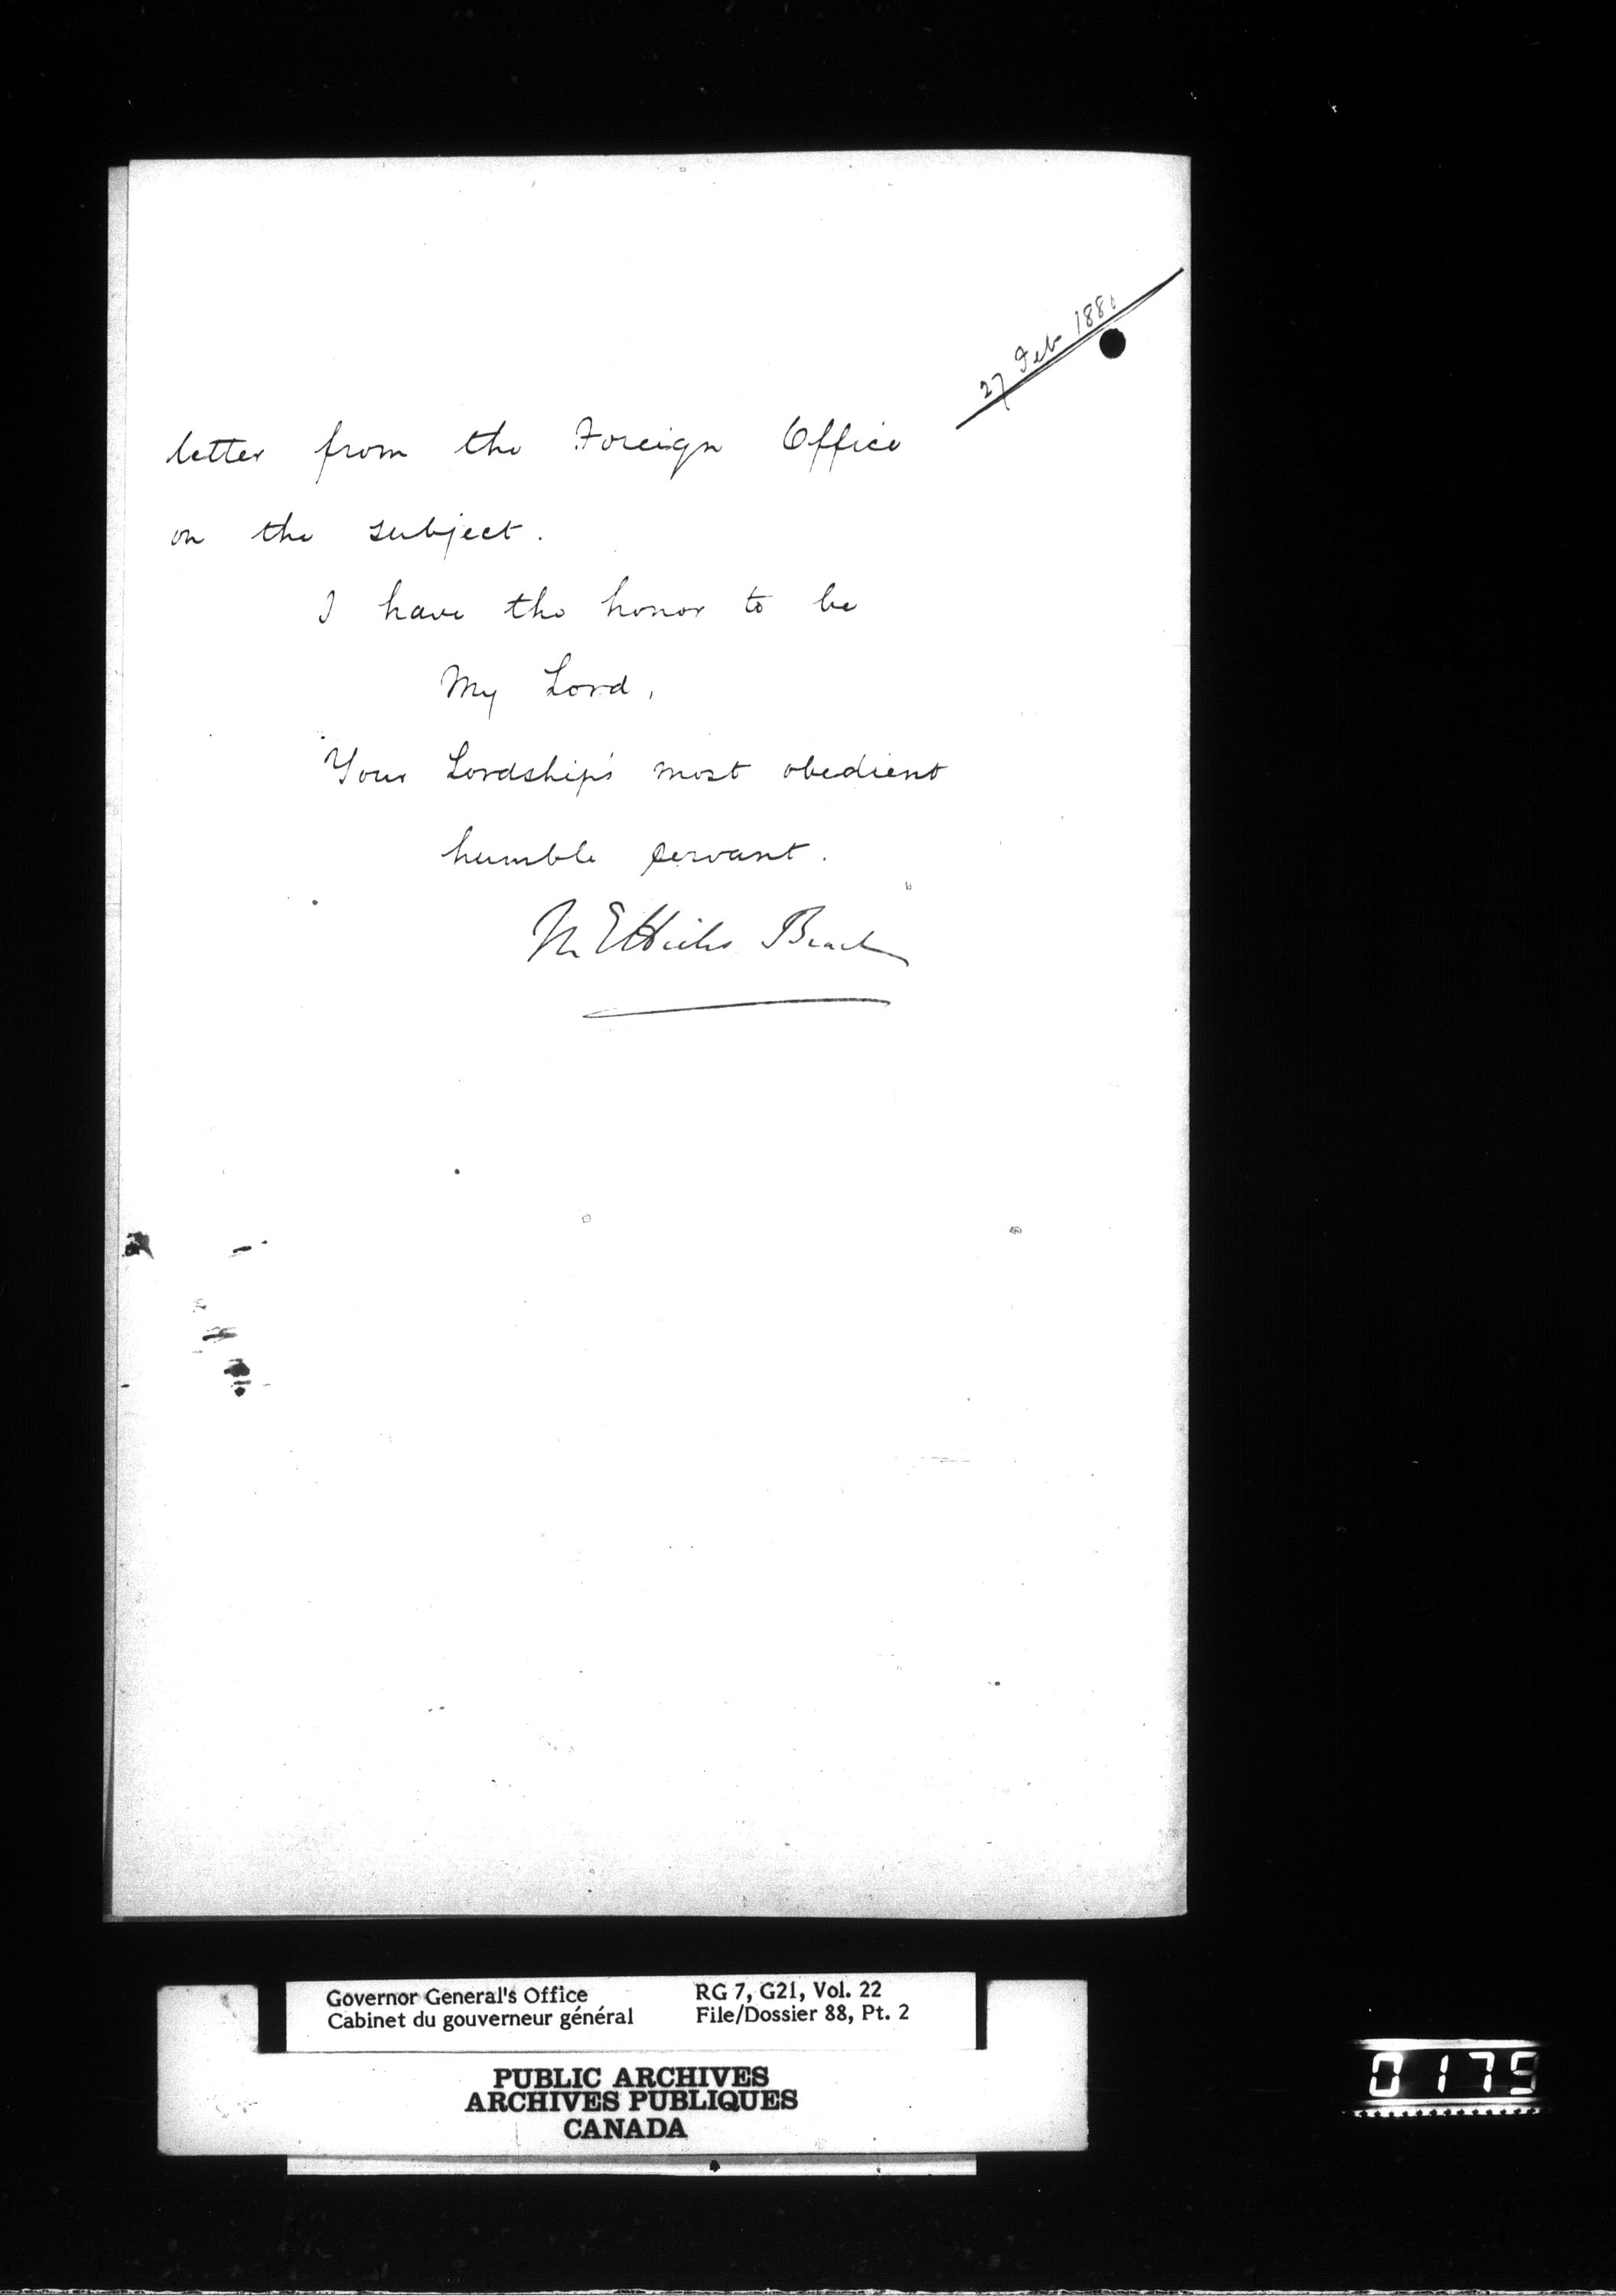 27 Feb 1880
letter from the Foreign Office
on the subject.
I have the honor to be
My Lord,
Your Lordship's most obedient
humble servant.
M E Hicks Beach
Governor General's Office
Cabinet du gouverneur général
RG 7, G21, Vol. 22
File/Dossier 88, Pt. 2
PUBLIC ARCHIVES
ARCHIVES PUBLIQUES
CANADA
0175